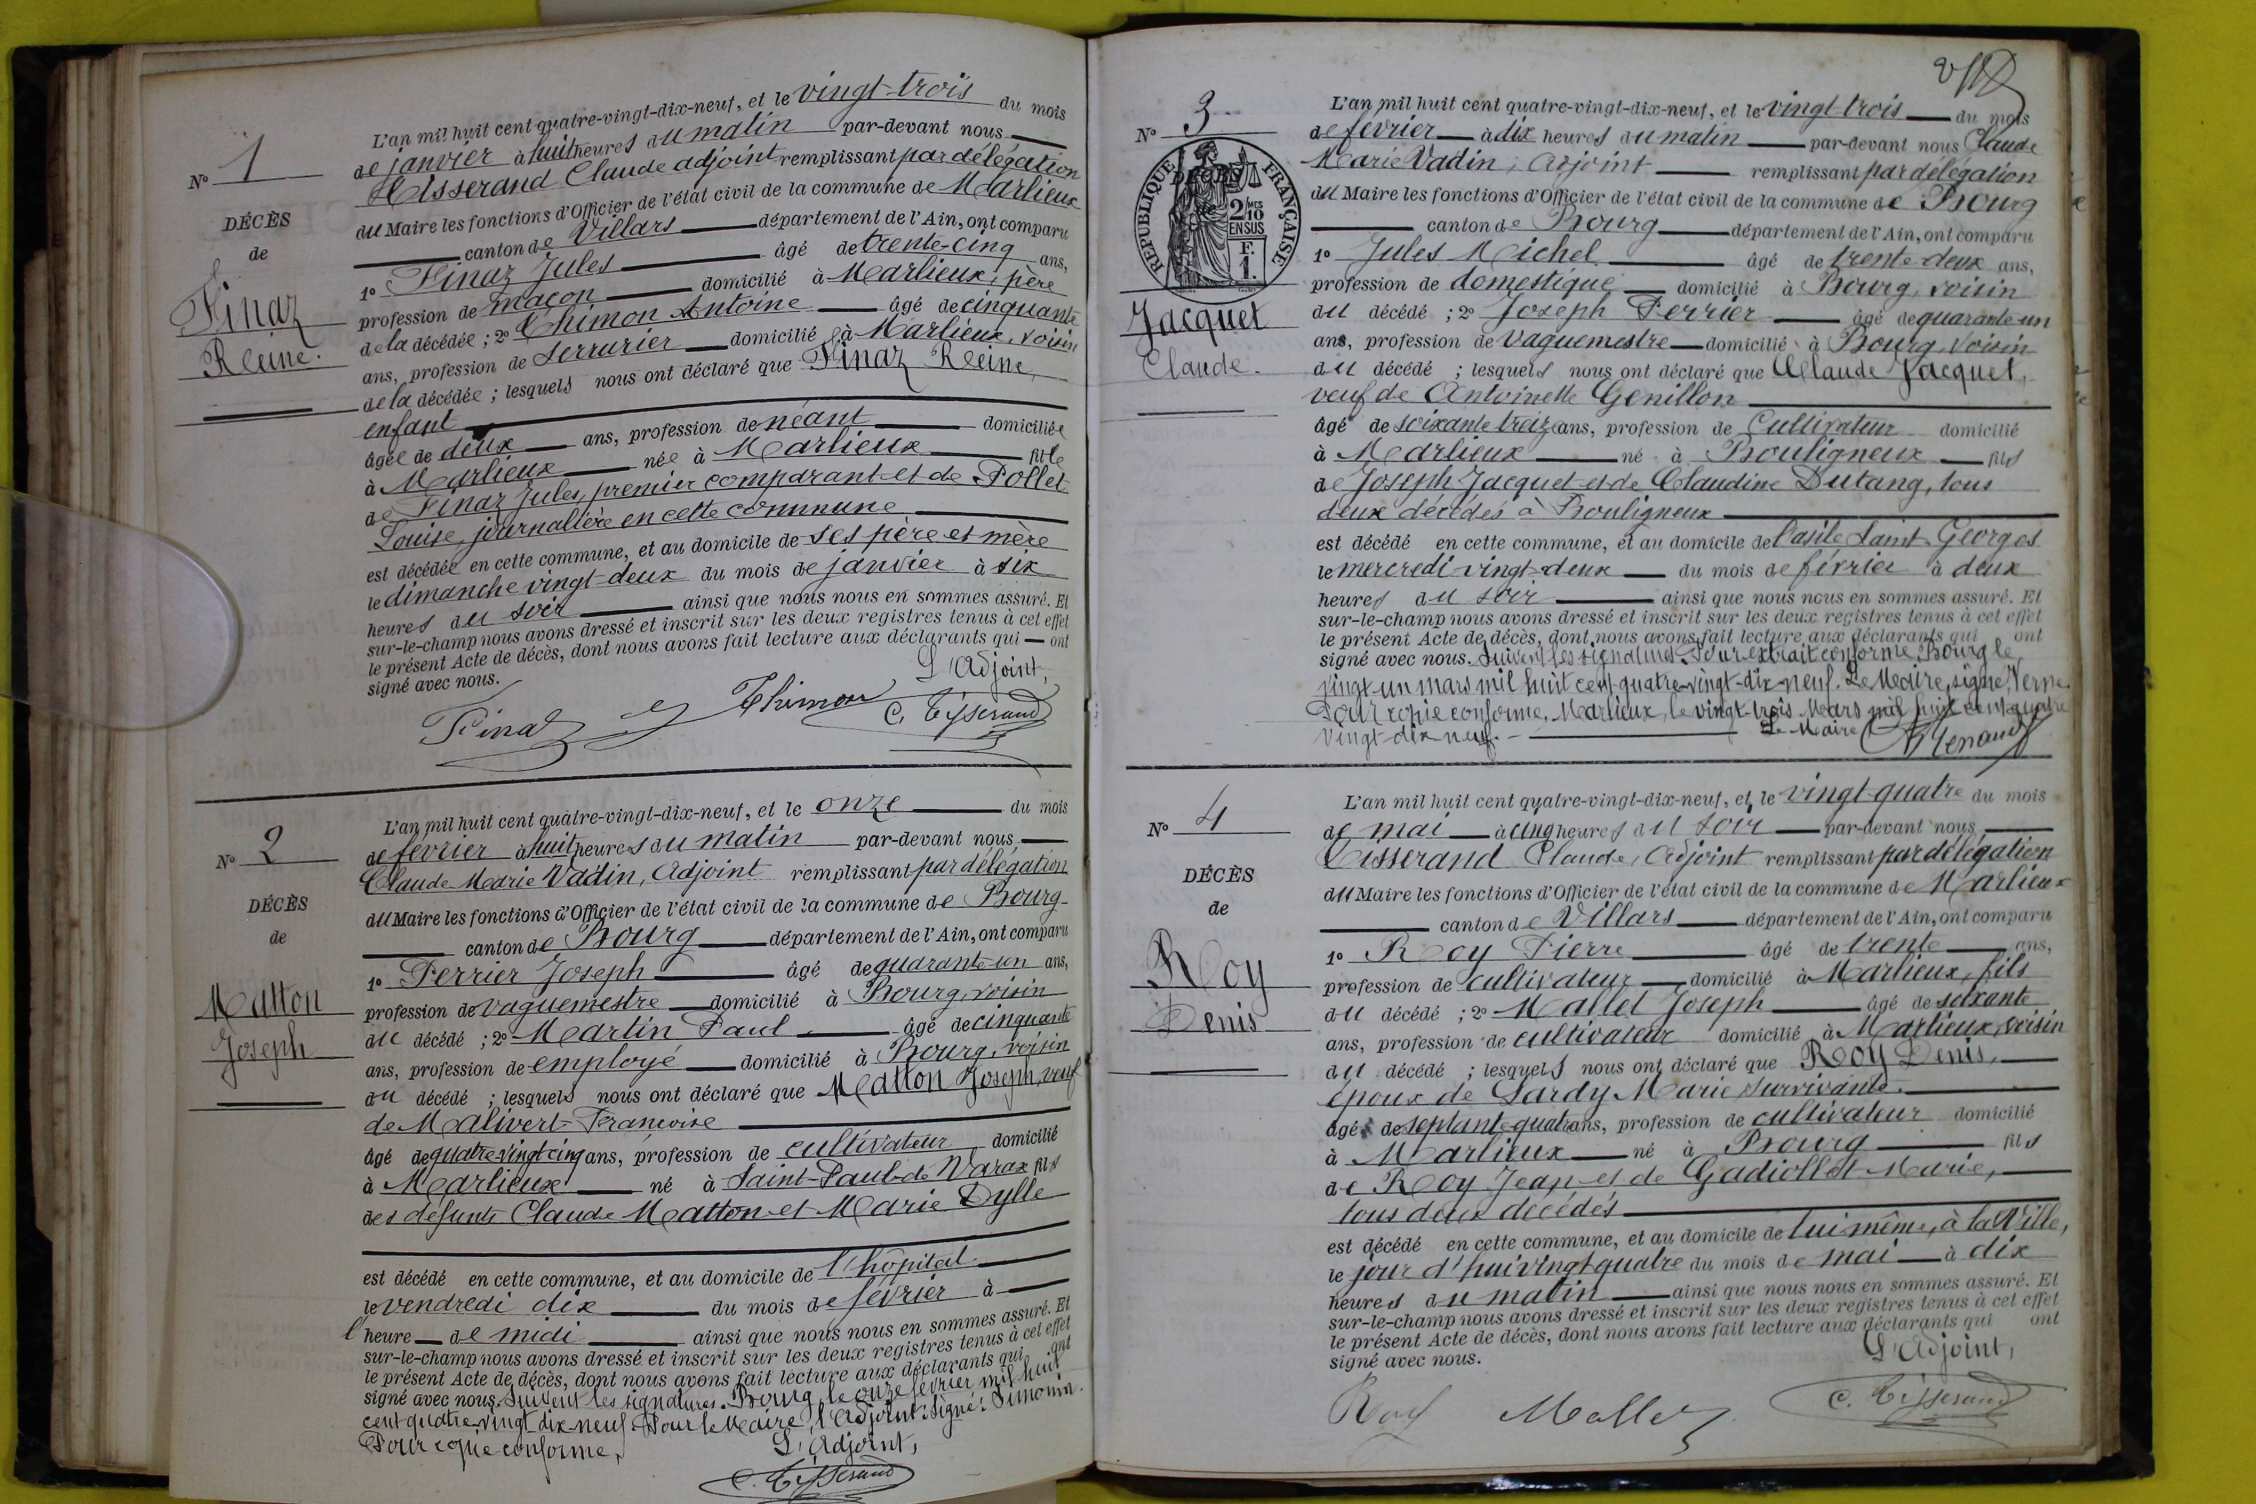 L'an mil huit cent quatre-vingt-dix-neuf, et le vingt-trois du mois
de janvier à huit heures du matin par-devant nous
Tisserand Claude adjoint remplissant par délégation
du Maire les fonctions d'Officier de l'état civil de la commune de Marlieux
canton de Villars département de l'Ain, ont comparu
1o Finaz Jules âgé de trente-cinq ans,
profession de maçon domicilié à Marlieux, père
de la décédée ; 2o Thimon Antoine âgé de cinquante
ans, profession de serrurier domicilié à Marlieux, voisin
de la décédée ; lesquels nous ont déclaré que Finaz Reine,
enfant
âgée de deux ans, profession de néant domiciliée
à Marlieux née à Marlieux fille
de Finaz Jules, premier comparant et de Pollet
Louise, journalière en cette commune
est décédée en cette commune, et au domicile de ses père et mère
le dimanche vingt-deux du mois de janvier à six
heures du soir ainsi que nous nous en sommes assuré. Et
sur-le-champ nous avons dressé et inscrit sur les deux registres tenus à cet effet
le présent Acte de décès, dont nous avons fait lecture aux déclarants qui ont
signé avec nous.
L'Adjoint,
Finaz Thimon C. Tisserand
No 1
DÉCÈS
de
Finaz
Reine.
L'an mil huit cent quatre-vingt-dix-neuf, et le onze du mois
de février à huit heures du matin par-devant nous
Claude Marie Vadin, Adjoint remplissant par délégation
du Maire les fonctions d'Officier de l'état civil de la commune de Bourg
canton de Bourg département de l'Ain, ont comparu
1o Ferrier Joseph âgé de quarante-un ans,
profession de vaguemestre domicilié à Bourg, voisin
du décédé ; 2o Martin Paul âgé de cinquante
ans, profession de employé domicilié à Bourg, voisin
du décédé ; lesquels nous ont déclaré que Matton Joseph, veuf
de Malivert Françoise
âgé de quatre-vingt-cinq ans, profession de cultivateur domicilié
à Marlieux né à Saint-Paul-de Varax fils
des défunts Claude Matton et Marie Dylle
est décédé en cette commune, et au domicile de l'hôpital
le vendredi dix du mois de février à
l'heure de midi ainsi que nous nous en sommes assuré. Et
sur-le-champ nous avons dressé et inscrit sur les deux registres tenus à cet effet
le présent Acte de décès, dont nous avons fait lecture aux déclarants qui ont
signé avec nous. Suivent les signatures. Bourg, le onze février mil huit
cent quatre-vingt dix-neuf. Pour le Maire, l'Adjoint: Signé: Simonin.
Pour copie conforme,
L'Adjoint,
C. Tisserand
No 2
DÉCÈS
de
Matton
Joseph
L'an mil huit cent quatre-vingt-dix-neuf, et le vingt-trois du mois
de février à dix heures du matin par-devant nous Claude
Marie Vadin, Adjoint remplissant par délégation
du Maire les fonctions d'Officier de l'état civil de la commune de Bourg
canton de Bourg département de l'Ain, ont comparu
1o Jules Michel âgé de trente-deux ans,
profession de domestique domicilié à Bourg, voisin
du décédé ; 2o Joseph Ferrier âgé de quarante-un
ans, profession de vaguemestre domicilié à Bourg, voisin
du décédé ; lesquels nous ont déclaré que Claude Jacquet,
veuf de Antoinette Genillon
âgé de soixante treize ans, profession de Cultivateur domicilié
à Marlieux né à Bouligneux fils
de Joseph Jacquet et de Claudine Dutang, tous
deux décédés à Bouligneux
est décédé en cette commune, et au domicile de l'asile Saint Georges
le mercredi vingt-deux du mois de février à deux
heures du soir ainsi que nous nous en sommes assuré. Et
sur-le-champ nous avons dressé et inscrit sur les deux registres tenus à cet effet
le présent Acte de décès, dont nous avons fait lecture aux déclarants qui ont
signé avec nous. Suivent les signatures. Pour extrait conforme, Bourg le
vingt-un mars mil huit cent quatre-vingt-dix-neuf. Le Maire, signé, Verne.
Pour copie conforme. Marlieux, le vingt-trois Mars mil huit cent quatre
vingt-dix-neuf. Le Maire
No 3
RÉPUBLIQUE FRANÇAISE
2/10 EN SUS
F. 1.
Jacquet
Claude.
L'an mil huit cent quatre-vingt-dix-neuf, et le vingt-quatre du mois
de mai à cinq heures du soir par-devant nous
Tisserand Claude, Adjoint remplissant par délégation
du Maire les fonctions d'Officier de l'état civil de la commune de Marlieux
canton de Villars département de l'Ain, ont comparu
1o Roy Pierre âgé de trente ans,
profession de cultivateur domicilié à Marlieux, fils
du décédé ; 2o Mallet Joseph âgé de soixante
ans, profession de cultivateur domicilié à Marlieux, voisin
du décédé ; lesquels nous ont déclaré que Roy Denis,
époux de Sardy Marie survivante.
âgé de septante-quatre ans, profession de cultivateur domicilié
à Marlieux né à Bourg fils
de Roy Jean et de Gadiollet Marie,
tous deux décédés
est décédé en cette commune, et au domicile de lui même, à la Ville,
le jour d'hui vingt quatre du mois de mai à dix
heures du matin ainsi que nous nous en sommes assuré. Et
sur-le-champ nous avons dressé et inscrit sur les deux registres tenus à cet effet
le présent Acte de décès, dont nous avons fait lecture aux déclarants qui ont
signé avec nous.
L'Adjoint,
Roy Mallet C. Tisserand
No 4
DÉCÈS
de
Roy
Denis